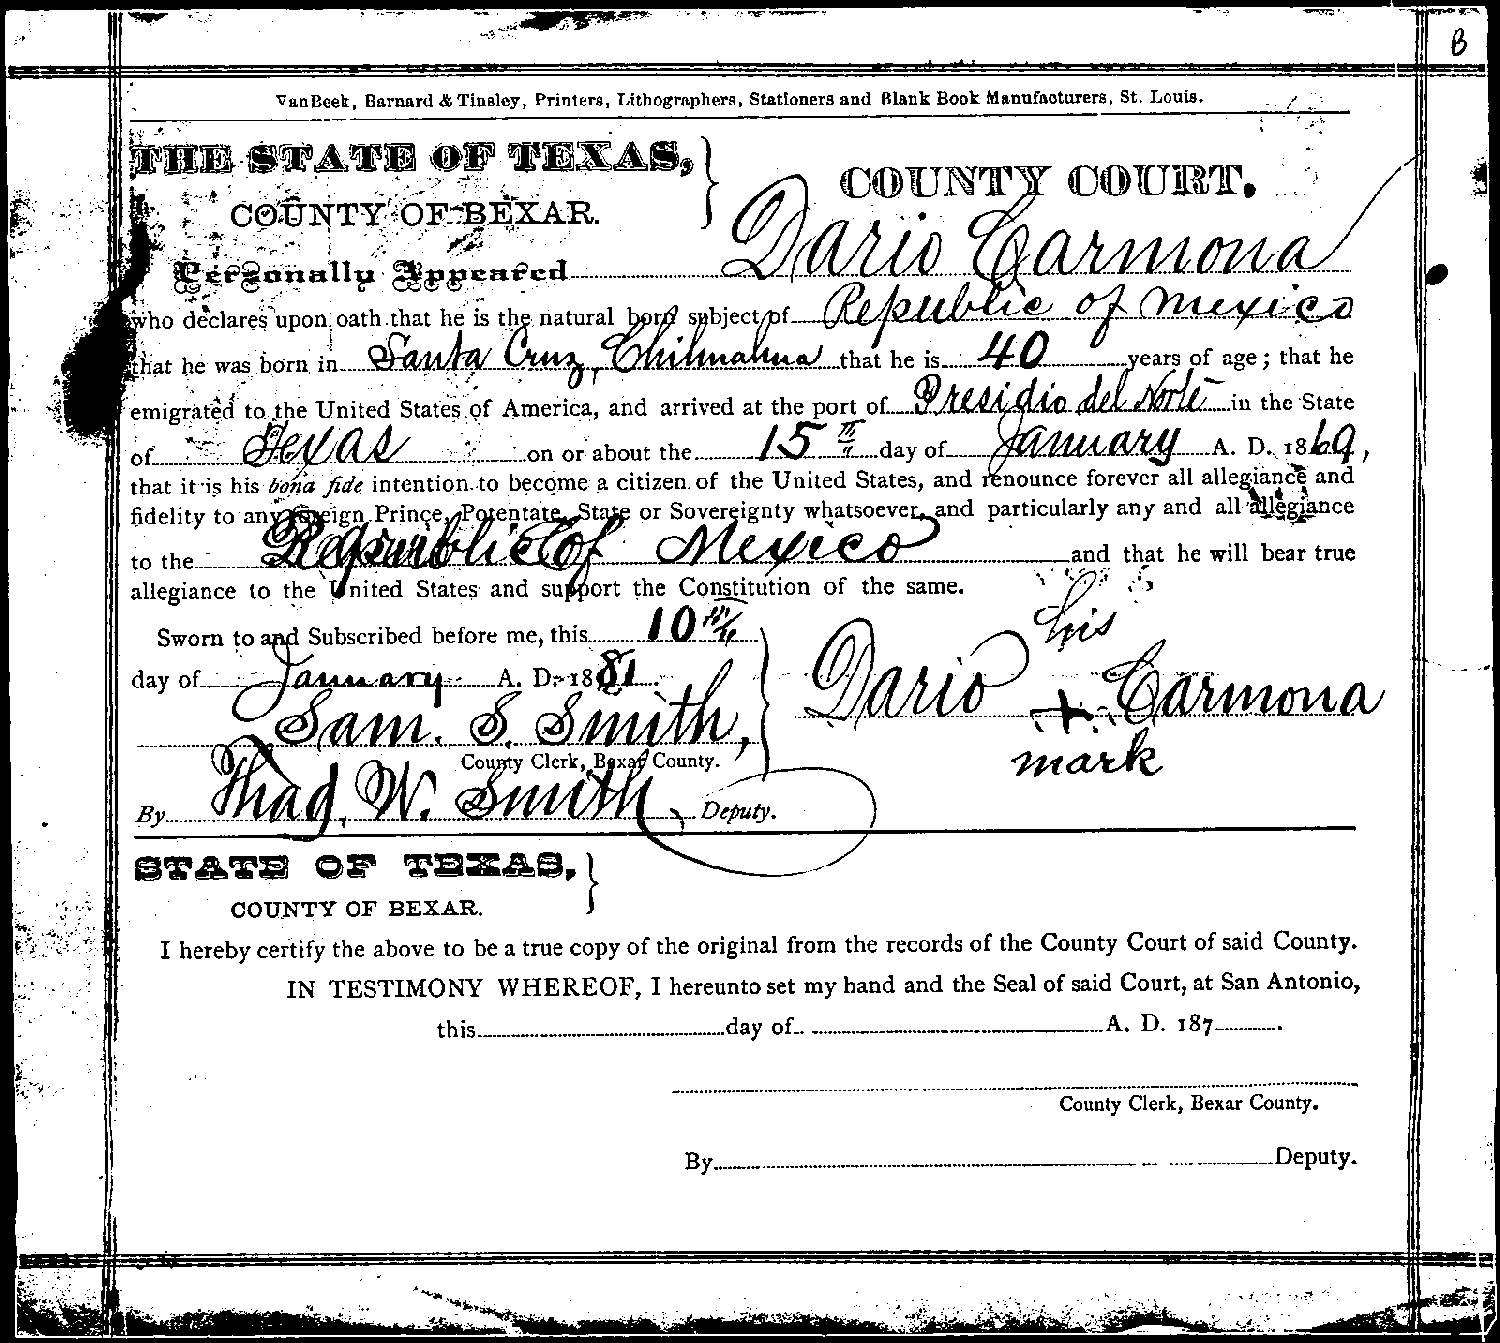 B
VanBeek, Barnard & Tinsley, Printers, Lithographers, Stationers and Blank Book Manufacturers, St. Louis.
THE STATE OF TEXAS, } COUNTY COURT.
COUNTY OF BEXAR.
Personally Appeared Dario Carmona
who declares upon oath that he is the natural born subject of Republic of Mexico
that he was born in Santa Cruz, Chihuahua that he is 40 years of age; that he
emigrated to the United States of America, and arrived at the port of Presidio del Norte in the State
of Texas on or about the 15th day of January A. D. 1869,
that it is his bona fide intention to become a citizen of the United States, and renounce forever all allegiance and
fidelity to any foreign Prince, Potentate, State or Sovereignty whatsoever, and particularly any and all allegiance
to the Republic of Mexico and that he will bear true
allegiance to the United States and support the Constitution of the same.
Sworn to and Subscribed before me, this 10th
day of January A. D. 1881
his
Dario + Carmona
mark
Sam. S. Smith,
County Clerk, Bexar County.
By Thad. W. Smith, Deputy.
STATE OF TEXAS, }
COUNTY OF BEXAR.
I hereby certify the above to be a true copy of the original from the records of the County Court of said County.
IN TESTIMONY WHEREOF, I hereunto set my hand and the Seal of said Court, at San Antonio,
this day of A. D. 187 .
County Clerk, Bexar County.
By Deputy.